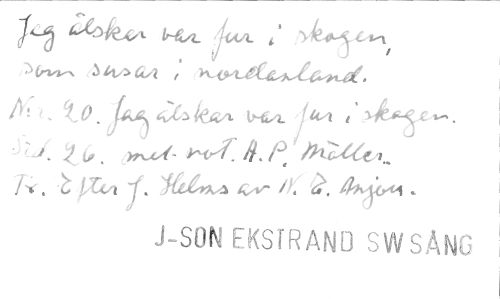 Jag älskar var fur i skogen,
som susar i nordanland.
Nr. 20. Jag älskar var fur i skogen.
Sid. 26. mel. not. A. P. Möller.
Tr. Efter J. Helms av N. E. Anjou.
J-SON EKSTRAND SW SÅNG